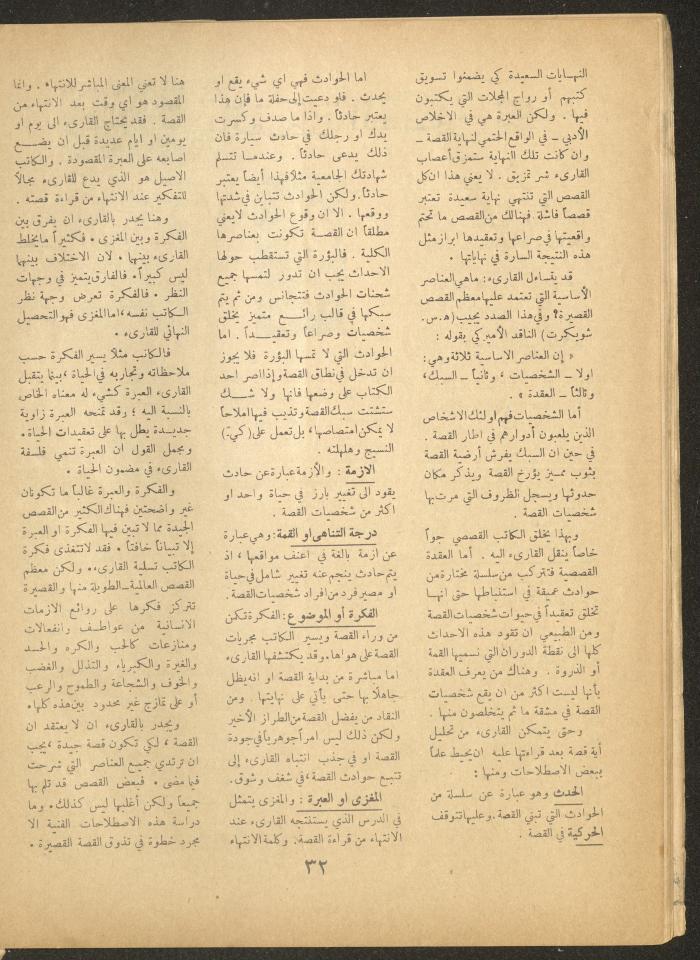 النهايات السعيدة كي يضمنوا تسويق
كتبهم أو رواج المجلات التي يكتبون
فيها . ولكن العبرة هي في الاخلاص
الأدبي ــ في الواقع الحتمي لنهاية القصة ــ
وان كانت تلك النهاية ستمزق أعصاب
القارىء شر تمزيق . لا يعني هذا ان كل
القصص التي تنتهي نهاية سعيدة تعتبر
قصصاً فاشلة. فهنالك من القصص ما تحتم
واقعيتها في صراعها وتعقيدها ابراز مثل
هذه النتيجة السارة في نهاياتها .
قد يتساءل القارىء: ماهي العناصر
الأساسية التي تعتمد عليها معظم القصص
القصيرة؟ وفي هذا الصدد يجيب (ه.س.
شويكرت) الناقد الأميركي بقوله :
« إن العناصر الاساسية ثلاثة وهي:
اولا ــ الشخصيات ، وثانياً ــ السبك،
وثالثاً ــ العقدة » .
أما الشخصيات فهم اولئك الاشخاص
الذين يلعبون أدوارهم في اطار القصة .
في حين ان السبك يفرش أرضية القصة
بثوب مميز يؤرخ القصة ويذكر مكان
حدوثها ويسجل الظروف التي مرت بها
شخصيات القصة .
وبهذا يخلق الكاتب القصصي جواً
خاصاً ينقل القارىء اليه . أما العقدة
القصصية فتتركب من سلسلة مختارة من
حوادث عميقة في استنباطها حتى انها
تخلق تعقيداً في حيوات شخصيات القصة
ومن الطبيعي ان تقود هذه الاحداث
كلها الى نقطة الدوران التي نسميها القمة
أو الذروة . وهناك من يعرف العقدة
بأنها ليست اكثر من ان يقع شخصيات
القصة في مشقة ما ثم يتخلصون منها .
وحتى يتمكن القارىء من تحليل
أية قصة بعد قراءتها عليه ان يحيط علماً
ببعض الاصطلاحات ومنها :
الحدث وهو عبارة عن سلسلة من
الحوادث التي تبني القصة. وعليها تتوقف
الحركية في القصة .
اما الحوادث فهي اي شيء يقع او
يحدث . فلو دعيت إلى حفلة ما فإن هذا
يعتبر حادثاً . واذا ما صدف وكسرت
يدك او رجلك في حادث سيارة فان
ذلك يدعى حادثاً . وعندما تتسلم
شهادتك الجامعية مثلا فهذا أيضاً يعتبر
حادثاً. ولكن الحوادث تتباين في شدتها
ووقعها . الا ان وقوع الحوادث لا يعني
مطلقاً ان القصة تكونت بعناصرها
الكلية . فالبؤرة التي تستقطب حولها
الاحداث يجب ان تدور لتمسها جميع
شحنات الحوادث فتتجانس ومن ثم يتم
سبكها في قالب رائع متميز يخلق
شخصيات وصراعاً وتعقيداً . اما
الحوادث التي لا تمسها البؤرة فلا يجوز
ان تدخل في نطاق القصة وإذا اصر احد
الكتاب على وضعها فانها ولا شك
ستشتت سبك القصة وتذيب فيها املاحاً
لا يمكن امتصاصها، بل تعمل على (كي)
النسيج وهلهلته .
الازمة : والأزمة عبارة عن حادث
يقود الى تغيير بارز في حياة واحد او
اكثر من شخصيات القصة .
درجة التناهى او القمة: وهي عبارة
عن ازمة بالغة في اعنف مواقعها ، اذ
يتم حادث ينجم عنه تغيير شامل في حياة
او مصير فرد من افراد شخصيات القصة.
الفكرة أو الموضوع: الفكرة تكمن
من وراء القصة ويسير الكاتب مجريات
القصة على هواها، وقد يكتشفها القارىء
اما مباشرة من بداية القصة او انه يظل
جاهلا بها حتى يأتي على نهايتها . ومن
النقاد من يفضل القصة من الطراز الأخير
ولكن ذلك ليس امراً جوهرياً في جودة
القصة او في جذب انتباه القارىء إلى
تتبع حوادث القصة، في شغف وشوق.
المغزى او العبرة : والمغزى يتمثل
في الدرس الذي يستنتجه القارىء عند
الانتهاء من قراءة القصة. وكلمة الانتهاء
هنا لا تعني المعنى المباشر للانتهاء . وانما
المقصود هو اي وقت بعد الانتهاء من
القصة . فقد يحتاج القارىء الى يوم او
يومين او ايام عديدة قبل ان يضع
اصابعه على العبرة المقصودة . والكاتب
الاصيل هو الذي يدع للقارىء مجالاً
للتفكير عند الانتهاء من قراءة قصته .
وهنا يجدر بالقارىء ان يفرق بين
الفكرة وبين المغزى . فكثيراً ما يخلط
القارىء بينهما . لان الاختلاف بينهما
ليس كبيراً. فالفارق يتميز في وجهات
النظر . فالفكرة تعرض وجهة نظر
الكاتب نفسه، اما المغزى فهو التحصيل
النهائي للقارىء .
فالكاتب مثلا يسير الفكرة حسب
ملاحظاته وتجاربه في الحياة ، بينما يتقبل
القارىء العبرة كشيء له معناه الخاص
بالنسبة اليه ؛ وقد تمنحه العبرة زاوية
جديدة يطل بها على تعقيدات الحياة .
ومجمل القول ان العبرة تنمي فلسفة
القارىء في مضمون الحياة .
والفكرة والعبرة غالباً ما تكونان
غير واضحتين فهناك الكثير من القصص
الجيدة مما لا تبين فيها الفكرة او العبرة
إلا تبياناً خافتاً . فقد لا تتغذى فكرة
الكاتب تسلية القارىء. ولكن معظم
القصص العالمية ــ الطويلة منها والقصيرة
تتركز فكرها على روائع الازمات
الانسانية من عواطف وانفعالات
ومنازعات كالحب والكره والحسد
والغيرة والكبرياء والتذلل والغضب
والخوف والشجاعة والطموح والرعب
أو على تمازج غير محدود بين هذه كلها.
ويجدر بالقارىء ان لا يعتقد ان
القصة ، لكي تكون قصة جيدة ، يجب
ان ترتدي جميع العناصر التي شرحت
فيما مضى . فبعض القصص قد تلم بها
جميعاً ولكن أغلبها ليس كذلك . وما
دراسة هذه الاصطلاحات الفنية الا
مجرد خطوة في تذوق القصة القصيرة .
٣٢